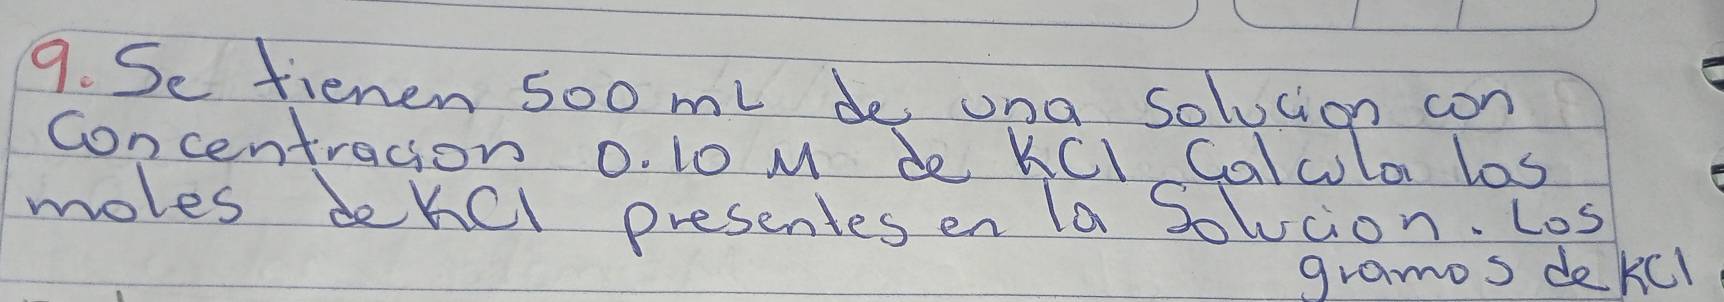 9. Se tienen 500 mL de una Solucion con
Concentracion 0.10 M de KCl Calcula los
moles de KCl presentes en la Solucion. Los
gramos de KCl